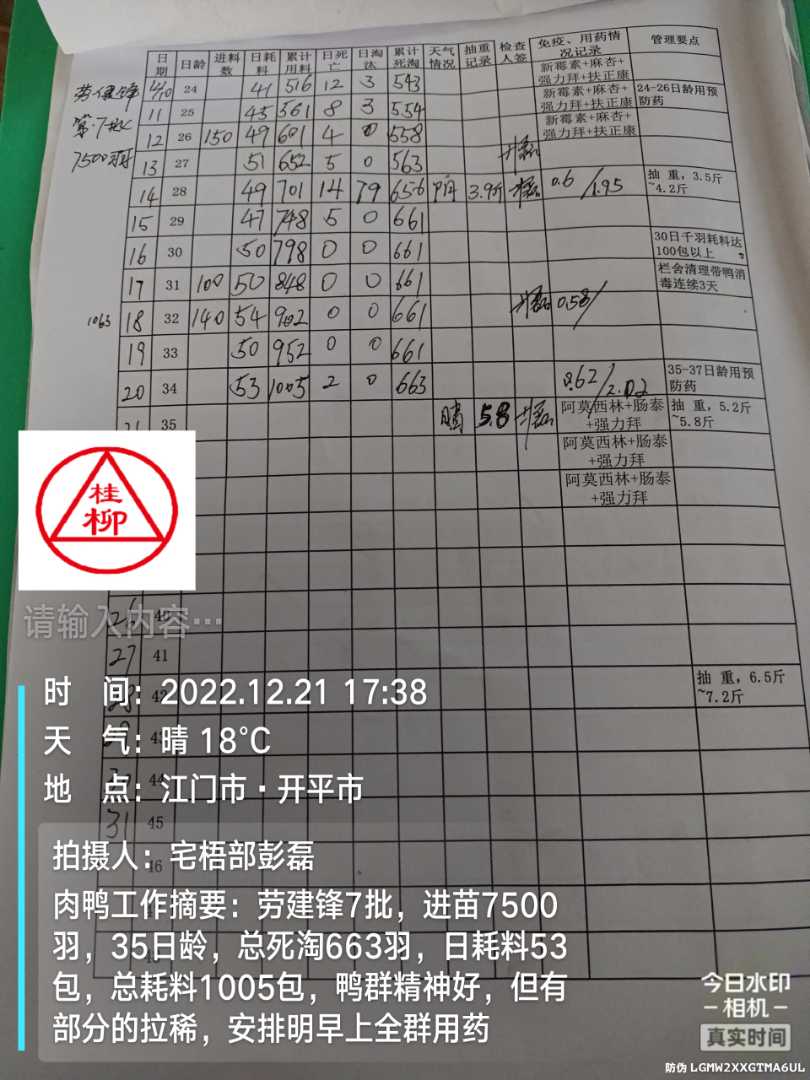 劳建锋
第7批
7500羽
日期 日龄 进料数 日耗料 累计用料 日死亡 日淘汰 累计死淘 天气情况 抽重记录 检查人签 免疫、用药情况记录 管理要点
12/10 24 41 516 12 3 543 新霉素+麻杏+强力拜+扶正康
11 25 45 561 8 3 554 新霉素+麻杏+强力拜+扶正康 24-26日龄用预防药
12 26 150 49 601 4 0 558 新霉素+麻杏+强力拜+扶正康
13 27 51 652 5 0 563
14 28 49 701 14 79 656 阴 3.9斤 0.6/1.95 抽 重，3.5斤~4.2斤
15 29 47 748 5 0 661
16 30 50 798 0 0 661 30日千羽耗料达100包以上
17 31 100 50 848 0 0 661 栏舍清理带鸭消毒连续3天
1063 18 32 140 54 902 0 0 661 0.58/
19 33 50 952 0 0 661
20 34 53 1005 2 0 663 0.62/2.02 35-37日龄用预防药
21 35 晴 5.8 阿莫西林+肠泰+强力拜 抽 重，5.2斤~5.8斤
阿莫西林+肠泰+强力拜
阿莫西林+肠泰+强力拜
桂柳
请输入内容…
26 40
27 41
28 42 抽 重，6.5斤~7.2斤
29 43
44
31 45
46
时 间：2022.12.21 17:38
天 气：晴 18℃
地 点：江门市·开平市
拍摄人：宅梧部彭磊
肉鸭工作摘要：劳建锋7批，进苗7500
羽，35日龄，总死淘663羽，日耗料53
包，总耗料1005包，鸭群精神好，但有
部分的拉稀，安排明早上全群用药
今日水印
-相机-
真实时间
防伪 LGMW2XXGTMA6UL